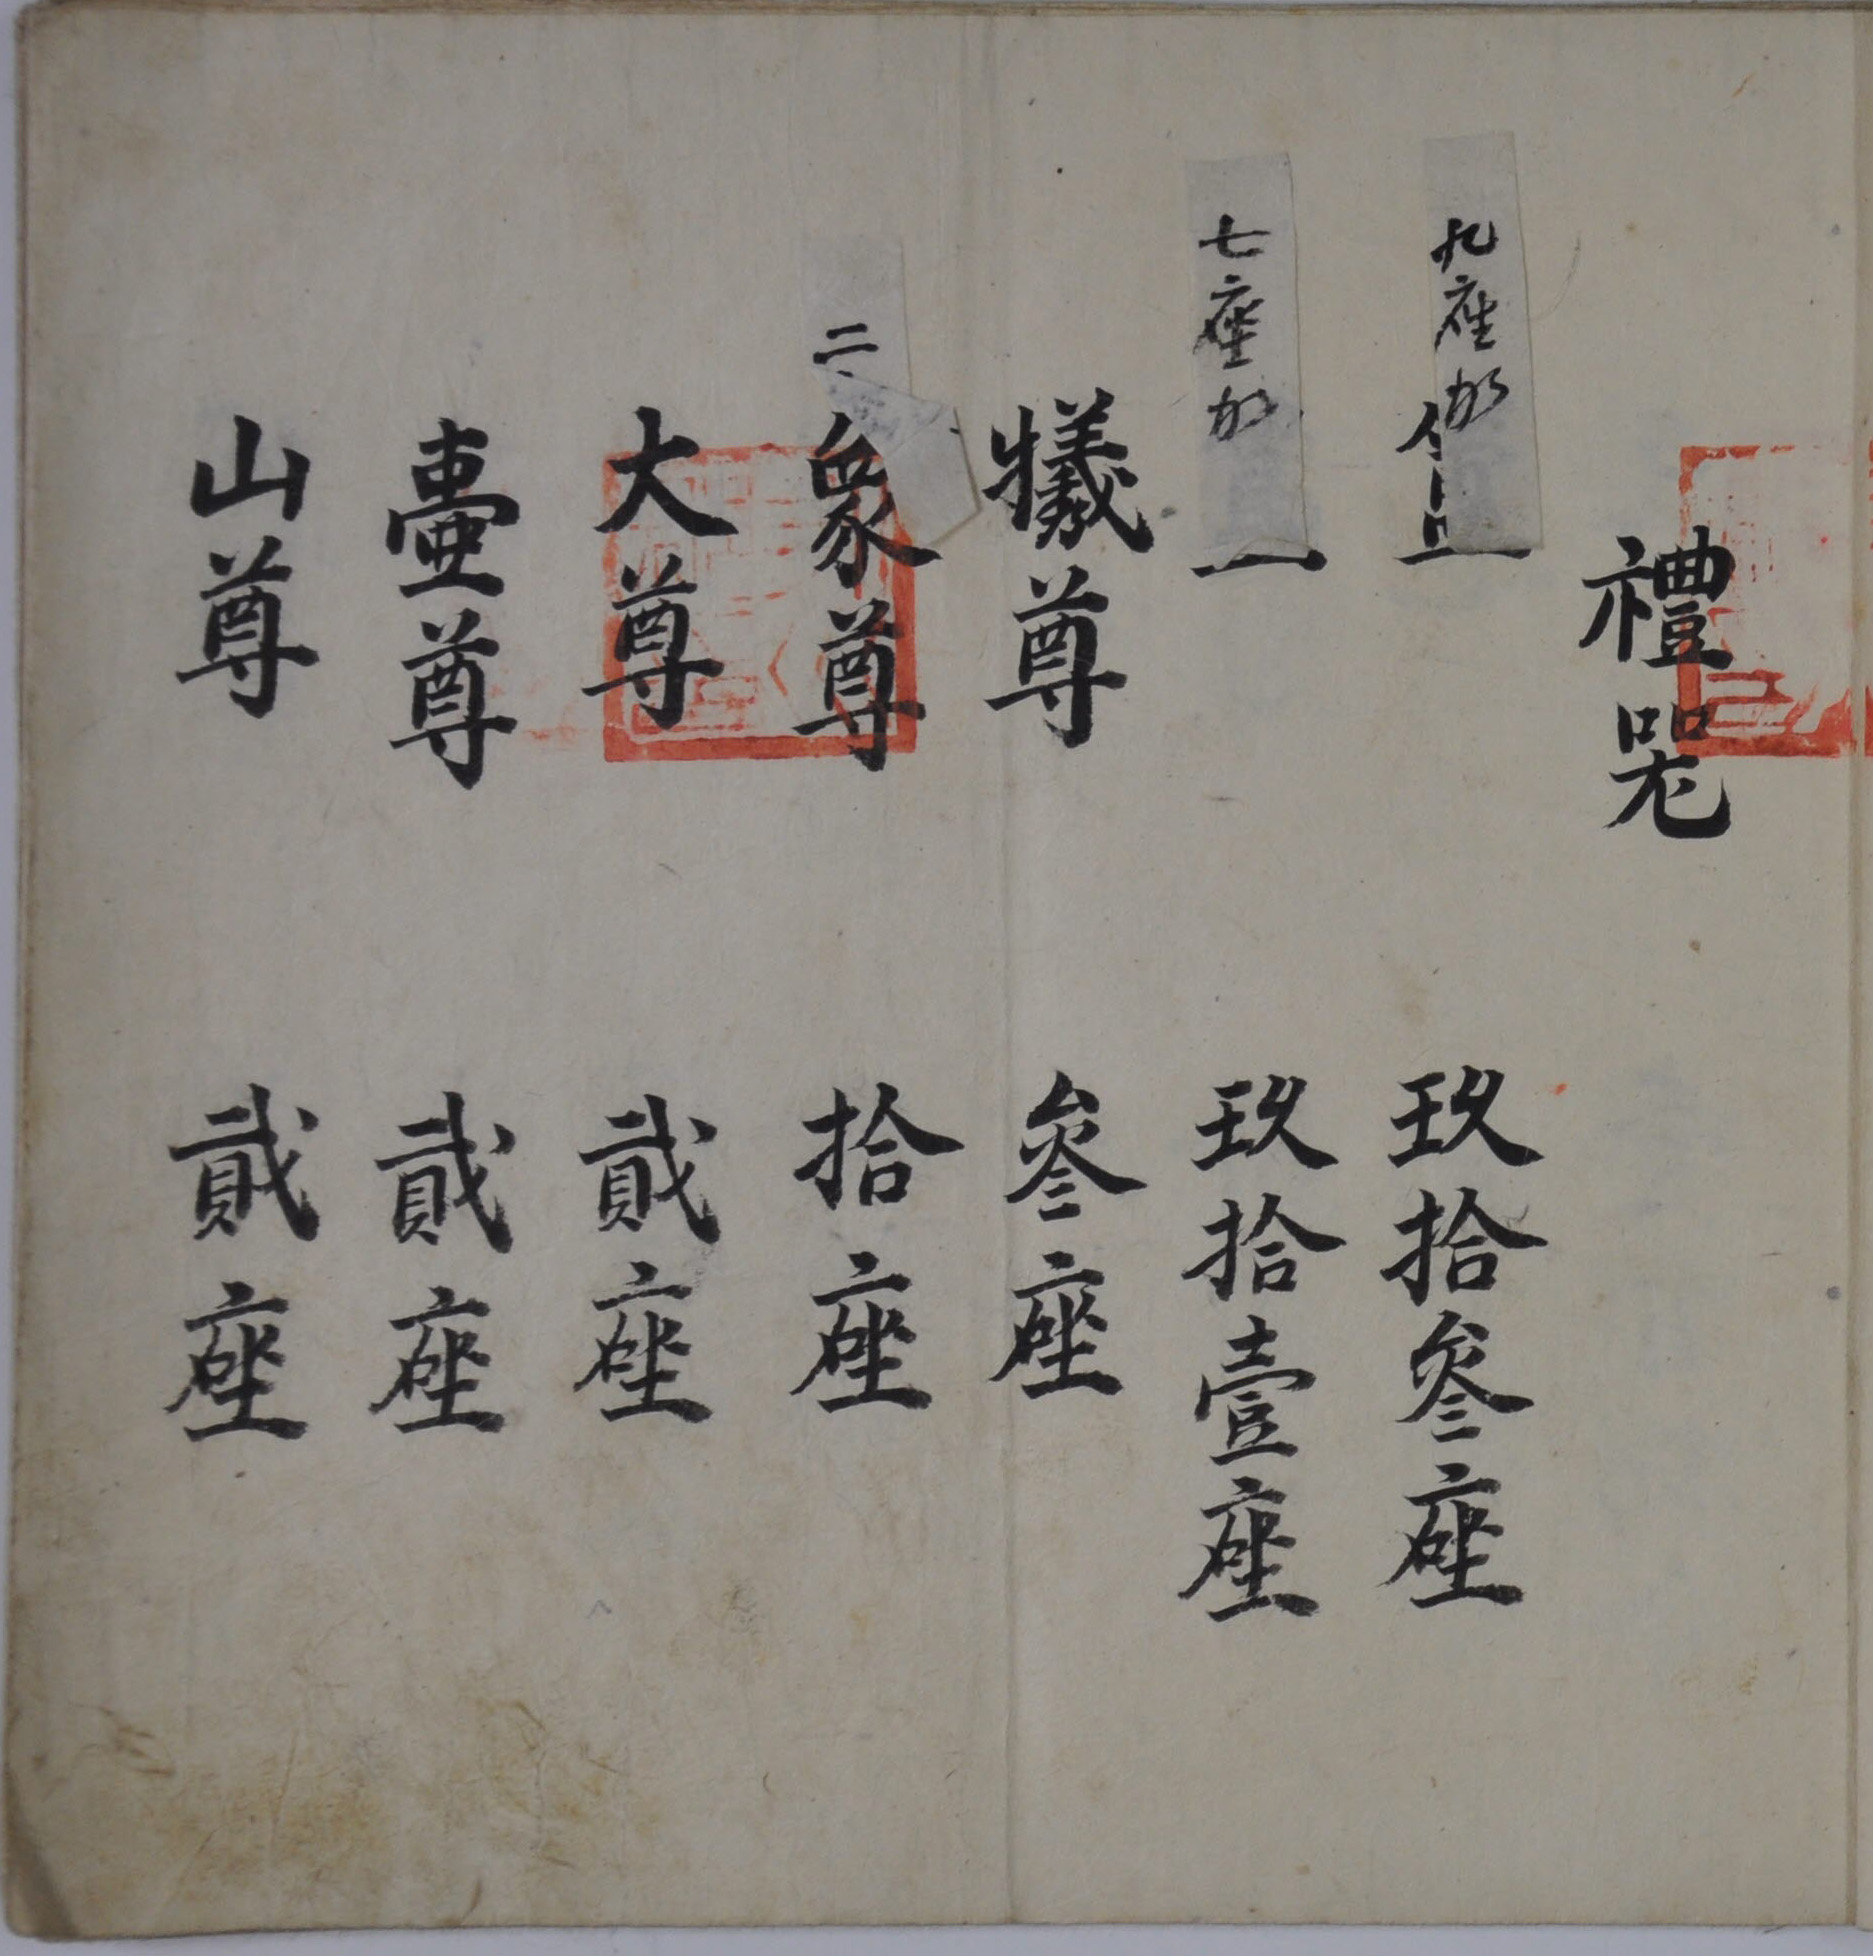 禮器
九座加
玖拾叄座
七座加
玖拾壹座
犧尊 叄座
二
象尊 拾座
大尊 貳座
壺尊 貳座
山尊 貳座